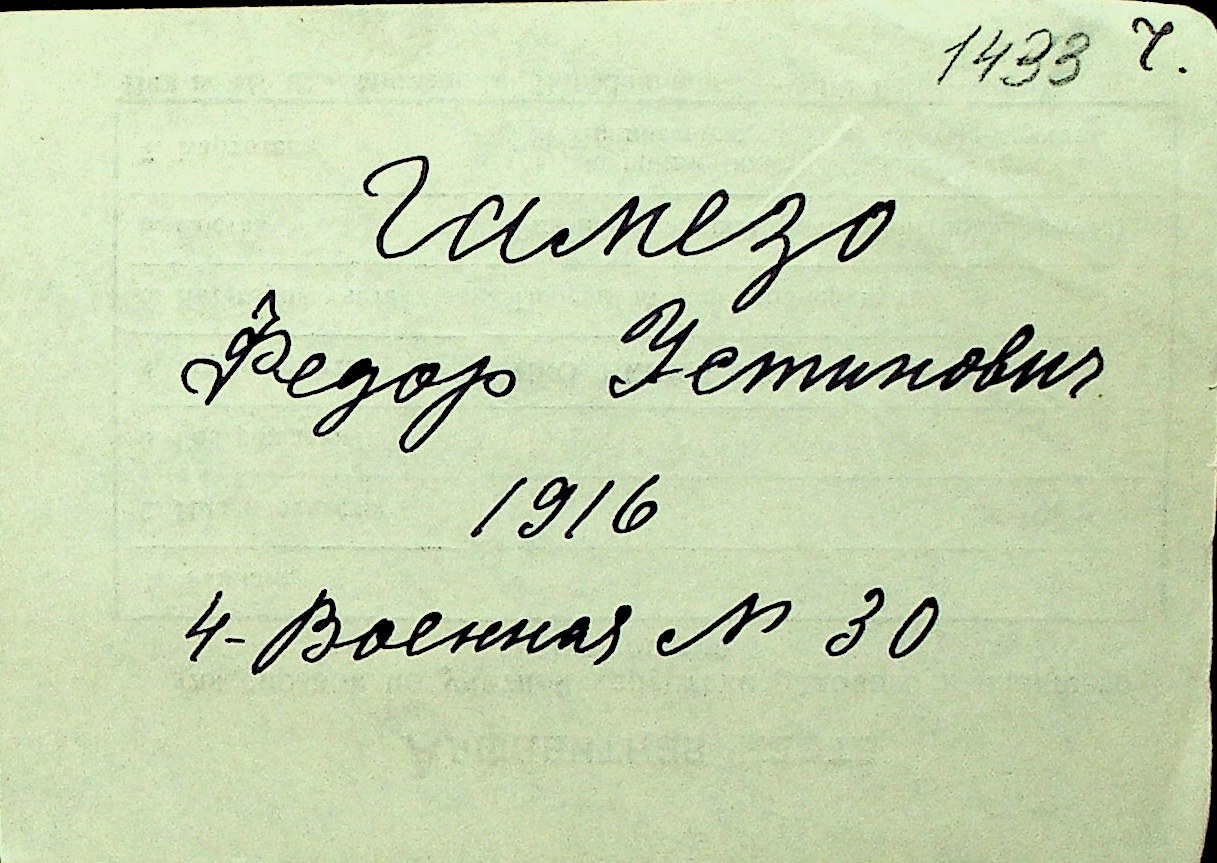 1433 ч.
Гамезо
Федор Устинович
1916
4-Военная № 30